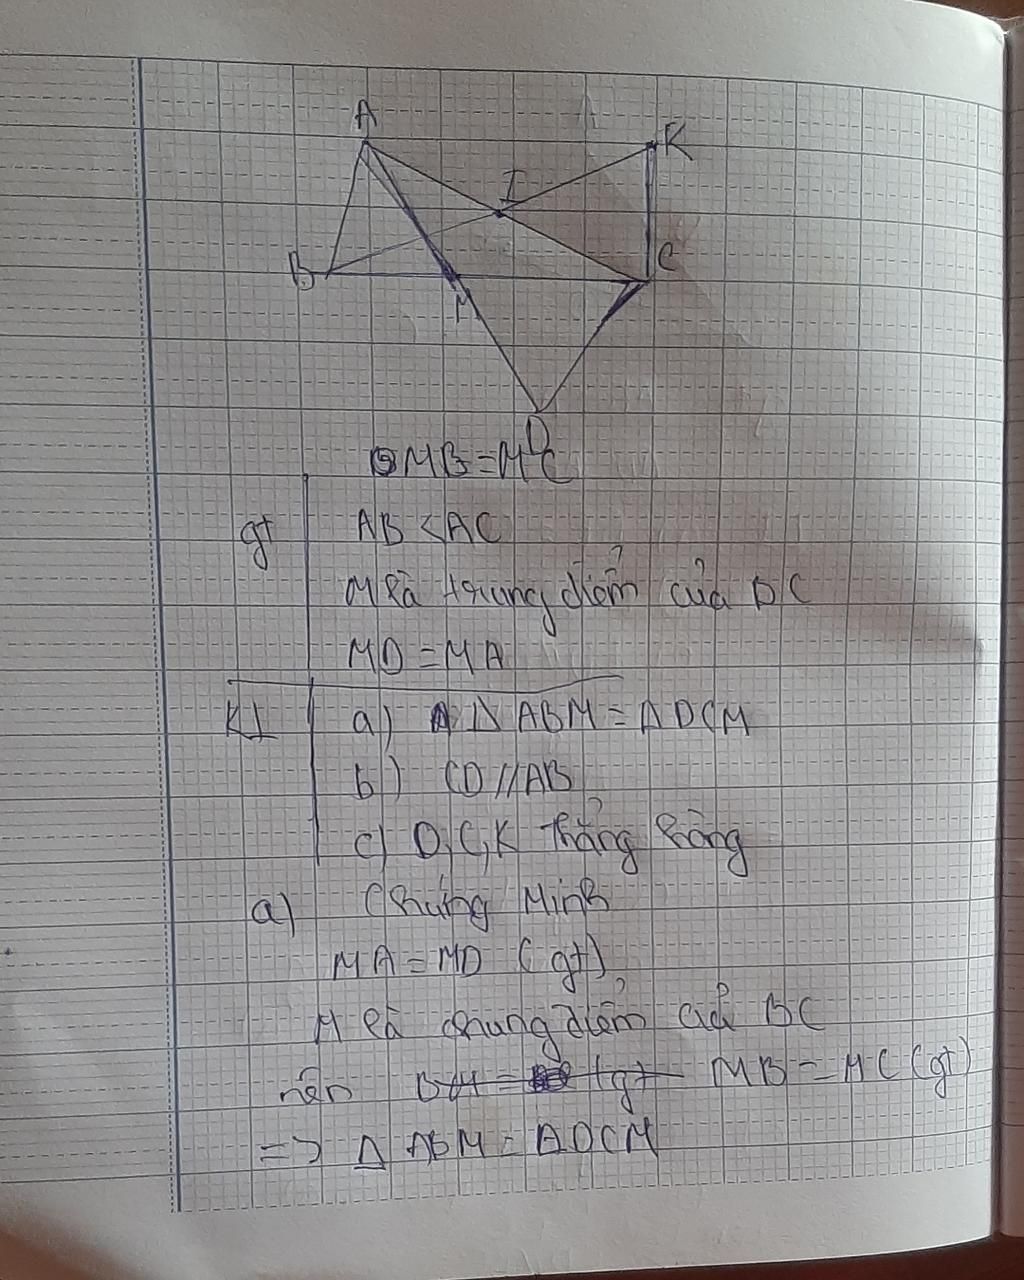 A
K
I
B
C
M
D
MB = MC
gt
AB < AC
M là trung điểm của BC
MD = MA
KL
a) Δ ABM = Δ DCM
b) CD // AB
c) D, C, K thẳng hàng
a) Chứng Minh
MA = MD (gt)
M là chung điểm của BC
nên MB = MC (gt)
=> Δ ABM = Δ DCM